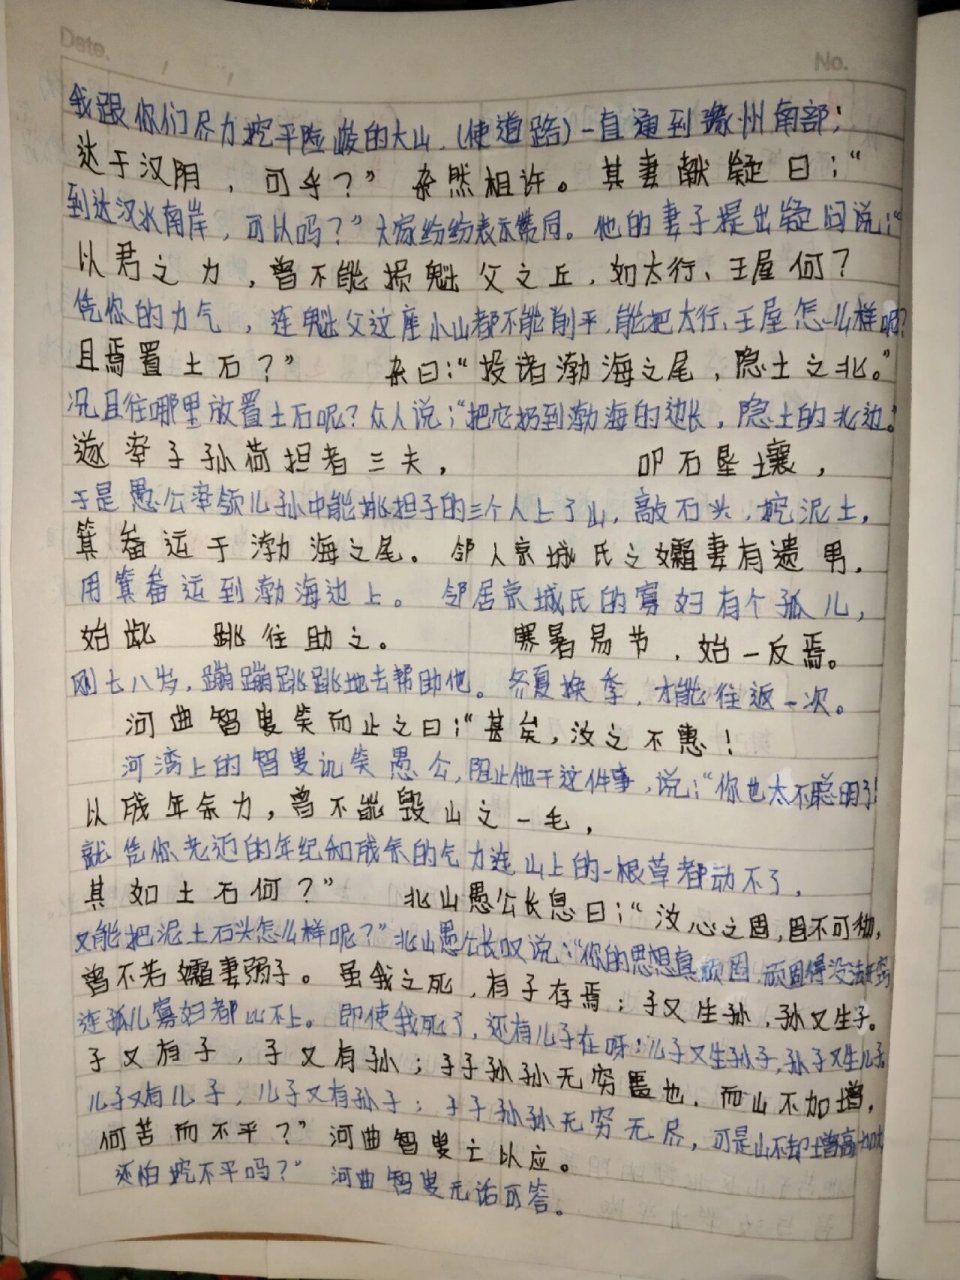 Date.
No.
我跟你们尽力挖平险峻的大山，(使道路)一直通到豫州南部；
达于汉阴，可乎？”杂然相许。其妻献疑曰：“
到达汉水南岸，可以吗？”大家纷纷表示赞同。他的妻子提出疑问说：“
以君之力，曾不能损魁父之丘，如太行、王屋何？
凭你的力气，连魁父这座小山都不能削平，能把太行、王屋怎么样呢？
且焉置土石？”杂曰：“投诸渤海之尾，隐土之北。”
况且往哪里放置土石呢？众人说：“把它扔到渤海的边长，隐土的北边。”
遂率子孙荷担者三夫，叩石垦壤，
于是愚公率领儿孙中能挑担子的三个人上了山，敲石头，挖泥土，
箕畚运于渤海之尾。邻人京城氏之孀妻有遗男，
用箕畚运到渤海边上。邻居京城氏的寡妇有个孤儿，
始龀跳往助之。寒暑易节，始一反焉。
刚七八岁，蹦蹦跳跳地去帮助他。冬夏换季，才能往返一次。
河曲智叟笑而止之曰：“甚矣，汝之不惠！
河湾上的智叟讥笑愚公，阻止他干这件事，说：“你也太不聪明了！
以残年余力，曾不能毁山之一毛，
就凭你老迈的年纪和残余的气力连山上的一根草都动不了，
其如土石何？”北山愚公长息曰：“汝心之固，固不可彻，
又能把泥土石头怎么样呢？”北山愚公长叹说：“你的思想真顽固，顽固得没法开窍
曾不若孀妻弱子。虽我之死，有子存焉；子又生孙，孙又生子。
连孤儿寡妇都比不上。即使我死了，还有儿子在呀；儿子又生孙子，孙子又生儿子
子又有子，子又有孙；子子孙孙无穷匮也，而山不加增，
儿子又有儿子，儿子又有孙子；子子孙孙无穷无尽，可是山不却增高加大
何苦而不平？”河曲智叟亡以应。
还怕挖不平吗？”河曲智叟无话可答。